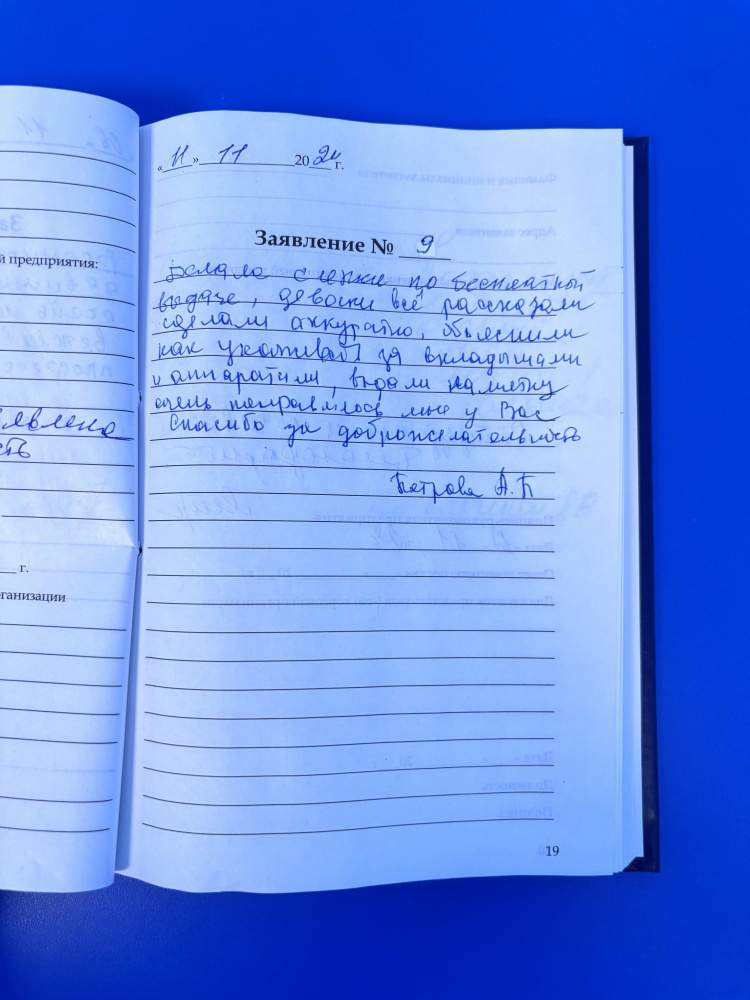 й предприятия:
явлена
сть
г.
рганизации
« 11 » 11 2024 г.
Заявление № 9
Делала слепки по бесплатной
выдаче, девочки всё рассказали
сделали аккуратно, объяснили
как ухаживать за вкладышами
и аппаратами, выдали памятку
очень понравилось мне у Вас
Спасибо за доброжелательность
Петрова А.П
19